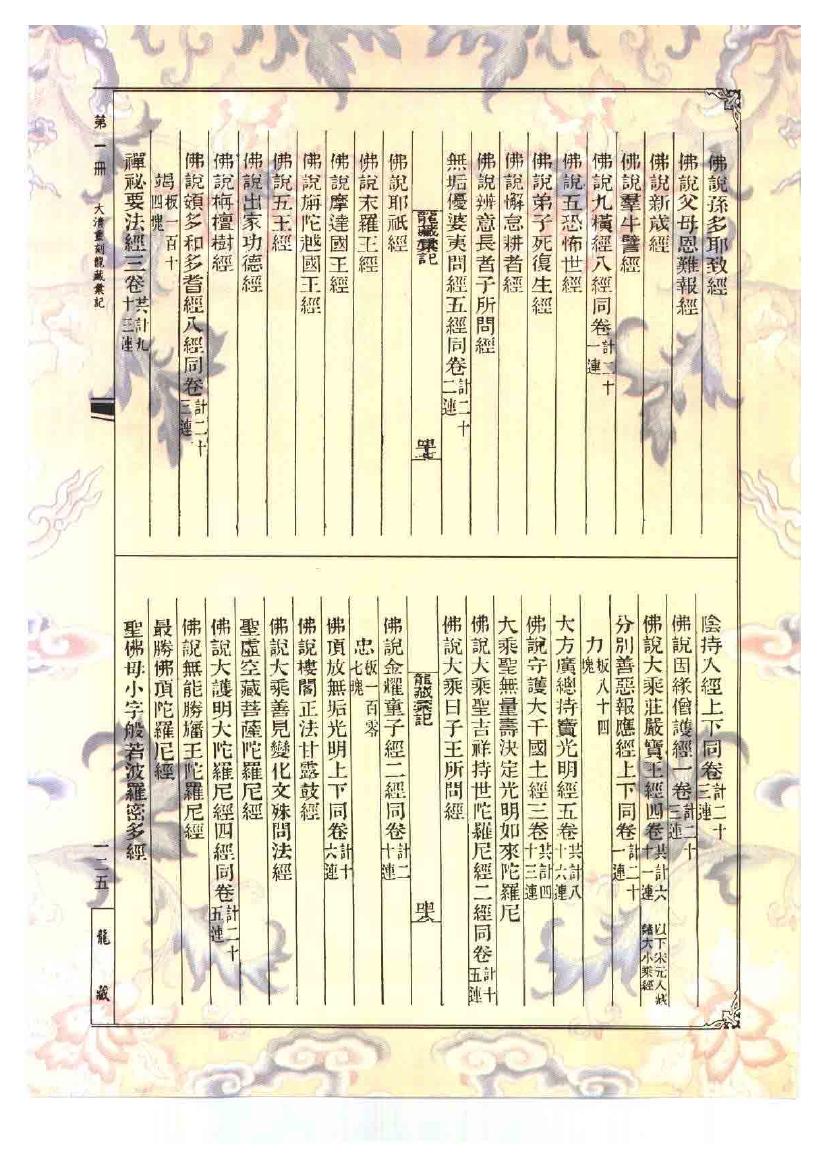 佛說孫多耶致經
佛說父母恩難報經
佛說新歲經
佛說羣牛譬經
佛說九橫經八經同卷計二十一連
佛說五恐怖世經
佛說弟子死復生經
佛說懈怠耕者經
佛說辨意長者子所問經
無垢優婆夷問經五經同卷計二十二連
龍藏彙記
佛說耶祇經
佛說末羅王經
佛說摩達國王經
佛說旃陀越國王經
佛說五王經
佛說出家功德經
佛說栴檀樹經
佛說頞多和多耆經八經同卷計二十三連
竭板一百十四塊
禪祕要法經三卷共計九十三連
第一冊 大清重刻龍藏彙記
陰持入經上下同卷計二十三連
佛說因緣僧護經一卷計二十三連
佛說大乘莊嚴寶王經四卷共計六十一連 以下宋元入藏諸大小乘經
分別善惡報應經上下同卷計二十一連
力板八十四塊
大方廣總持寶光明經五卷共計八十六連
佛說守護大千國土經三卷共計四十三連
大乘聖無量壽決定光明如來陀羅尼
佛說大乘聖吉祥持世陀羅尼經二經同卷計十五連
佛說大乘日子王所問經
龍藏彙記
佛說金耀童子經二經同卷計二十連
忠板一百零七塊
佛頂放無垢光明上下同卷計十六連
佛說樓閣正法甘露鼓經
佛說大乘善見變化文殊問法經
聖虛空藏菩薩陀羅尼經
佛說大護明大陀羅尼經四經同卷計二十五連
佛說無能勝旛王陀羅尼經
最勝佛頂陀羅尼經
聖佛母小字般若波羅密多經
一二五
龍藏